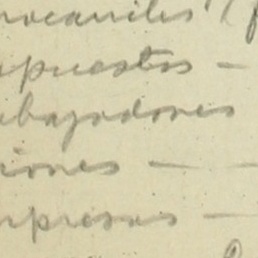 rocarriles (
puestos -
abajadores
iones -
mpresas -